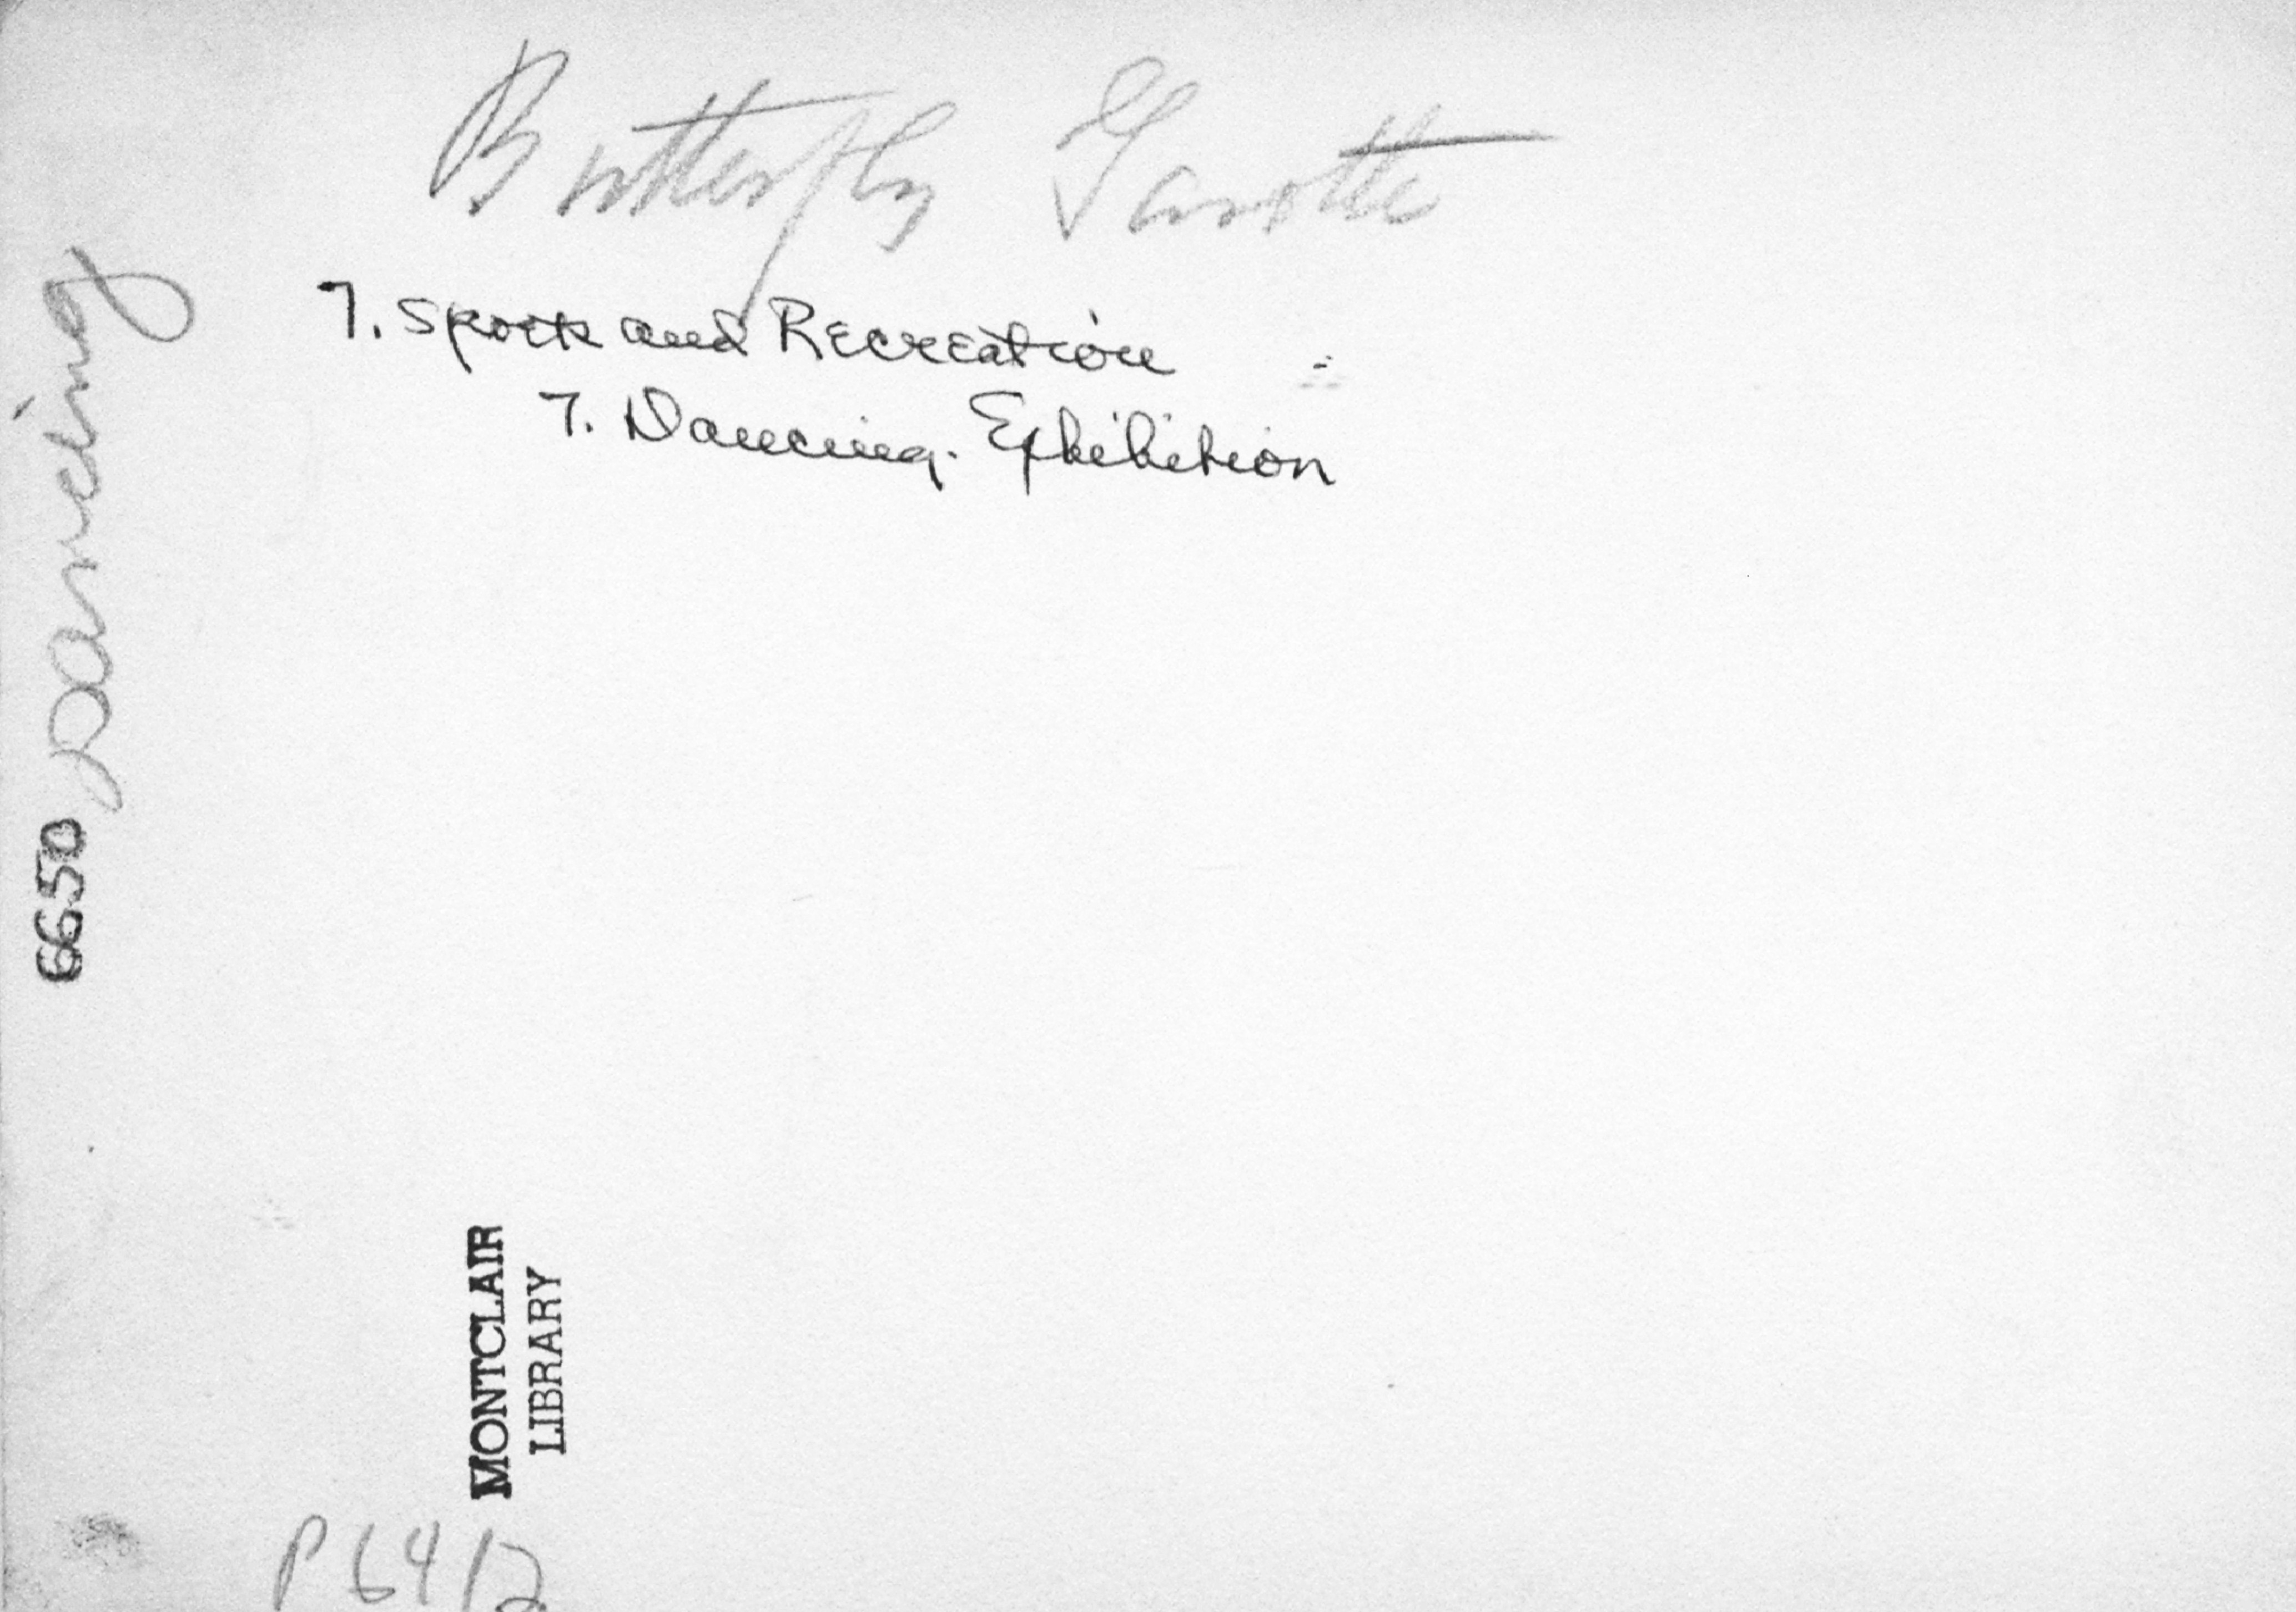 Butterfly Gavotte
7. Sports and Recreation
7. Dancing. Exhibition
Dancing
6650
MONTCLAIR
LIBRARY
P64/2